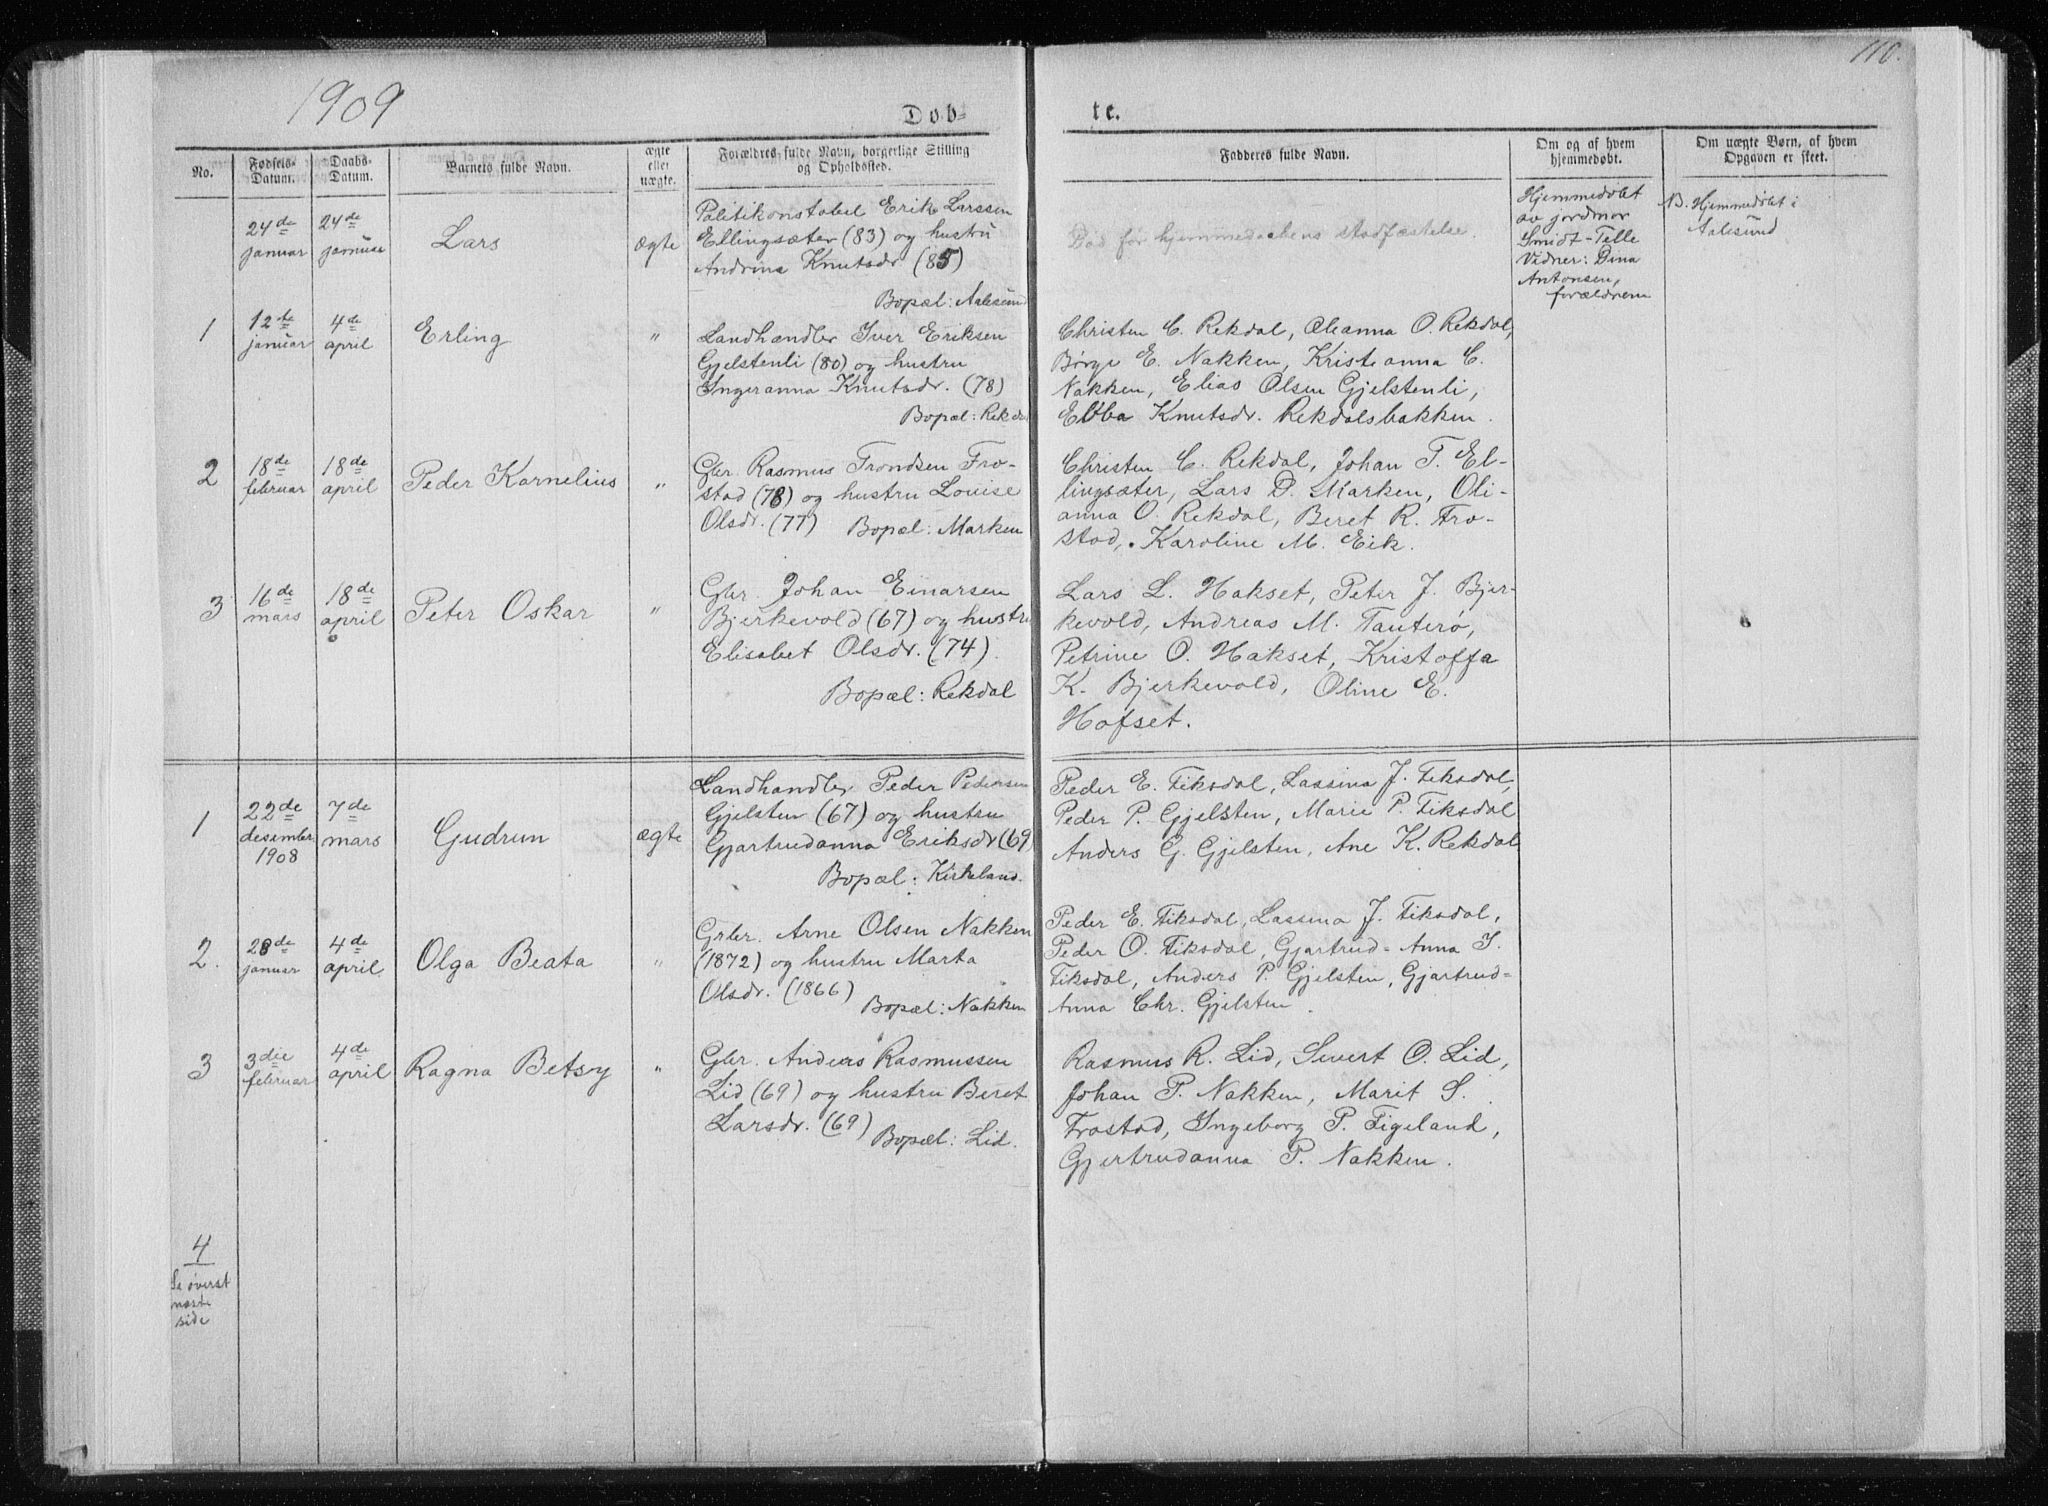 1909
110.
Døb-
te.
No.
Fødsels-
Datum.
Daabs-
Datum.
Barnets fulde Navn.
ægte
eller
uægte.
Forældres fulde Navn, borgerlige Stilling
og Opholdssted.
Fadderes fulde Navn.
Om og af hvem
hjemmedøbt.
Om uægte Børn, af hvem
Opgaven er skeet.
24de
januar
24de
januar
Lars
ægte
Politikonstabel Erik Larssen
Ellingsæter (83) og hustru
Andrina Knutsdr (85)
Bopæl: Aalesund
Død før hjemmedaabens stadfæstelse.
Hjemmedøbt
av jordmor
Smidt-Telle
Vidner: Dina
Antonsen,
forældrene
NB. Hjemmedøbt i
Aalesund
1
12te
januar
4de
april
Erling
"
Landhandler Iver Eriksen
Gjelstenli (80) og hustru
Ingeranna Knutsdr. (78)
Bopæl: Rekdal
Christen C. Rekdal, Olianna O. Rekdal,
Børge E. Nakken, Kristianna C.
Nakken, Elias Olsen Gjelstenli,
Ebba Knutsdr. Rekdalsbakken.
2
18de
februar
18de
april
Peder Kornelius
"
Gbr. Rasmus Trondsen Fro-
stad (78) og hustru Louise
Olsdr. (77) Bopæl: Marken
Christen C. Rekdal, Johan T. El-
lingsæter, Lars D. Marken, Oli-
anna O. Rekdal, Beret R. Fro-
stad, Karoline M. Eik.
3
16de
mars
18de
april
Peter Oskar
"
Gbr. Johan Einarsen
Bjerkevold (67) og hustru
Elisabet Olsdr. (74).
Bopæl: Rekdal
Lars L. Hakset, Peter J. Bjer-
kevold, Andreas M. Tauterø,
Petrine O. Hakset, Kristoffa
K. Bjerkevold, Oline E.
Hofset.
1
22de
desember
1908
7de
mars
Gudrun
ægte
Landhandler Peder Pedersen
Gjelsten (67) og hustru
Gjartrudanna Eriksdr (69)
Bopæl: Kirkeland.
Peder E. Fiksdal, Lassina J. Fiksdal,
Peder P. Gjelsten, Marie P. Fiksdal
Anders G. Gjelsten, Ane K. Rekdal
2.
28de
januar
4de
april
Olga Beata
"
Grbr. Arne Olsen Nakken
(1872) og hustru Marta
Olsdr. (1866)
Bopæl: Nakken
Peder E. Fiksdal, Lassina J. Fiksdal,
Peder O. Fiksdal, Gjartrud-Anna I.
Fiksdal, Anders P Gjelsten, Gjartrud-
Anna Chr. Gjelsten.
3
3die
februar
4de
april
Ragna Betsy
"
Gbr. Anders Rasmussen
Lid (69) og hustru Beret
Larsdr. (69)
Bopæl: Lid.
Rasmus R. Lid, Sivert O. Lid,
Johan P. Nakken, Marit S.
Frostad, Ingeborg P. Figeland,
Gjertrudanna P. Nakken.
4
Se øverst
næste
side